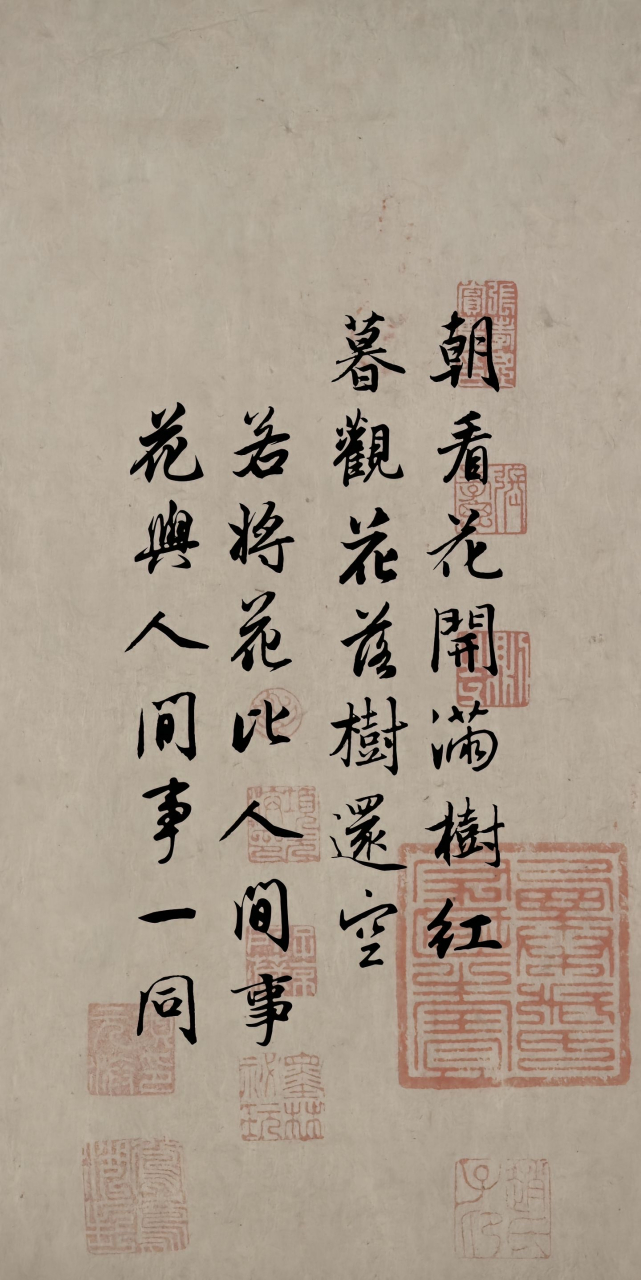 朝看花開滿樹紅
暮觀花落樹還空
若將花比人間事
花與人間事一同